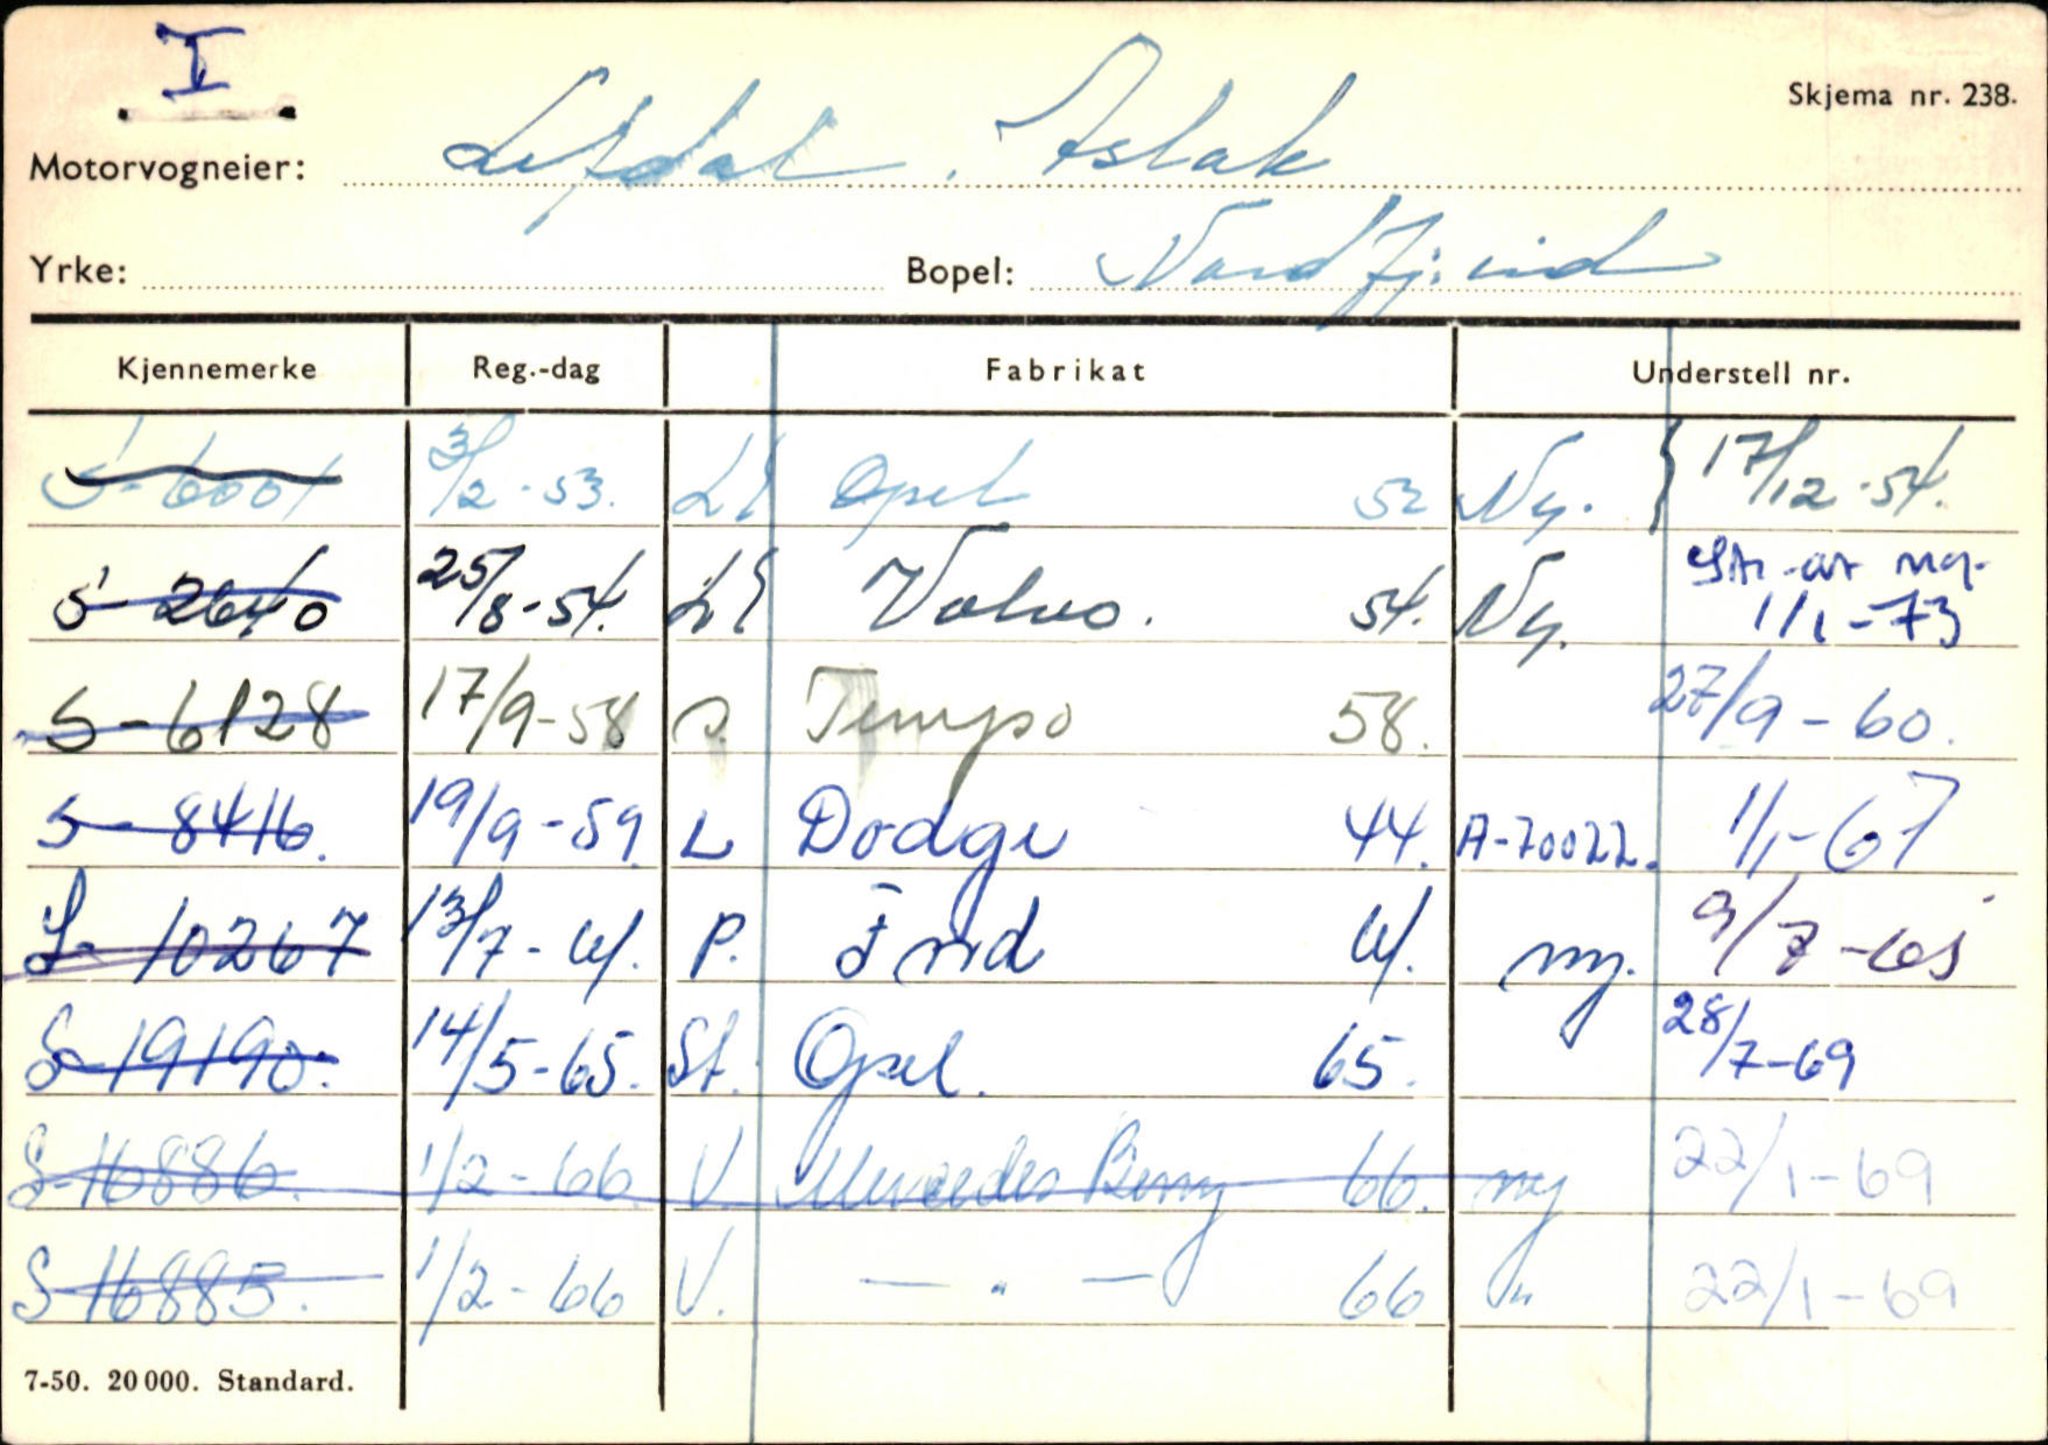 I
Skjema nr. 238.
Motorvogneier: Lefdal, Aslak
Yrke: Bopel: Nordfj.eid
Kjennemerke Reg.-dag Fabrikat Understell nr.
S-6001 3/2-53. L Opel 52 Ny. 17/12-54.
S-2640 25/8-54. L Volvo. 54. Ny. 1/1-73
S-6128 17/9-58 Tempo 58. 27/9-60.
S-8416. 19/9-59. L Dodge 44. A-70022. 1/1-67
S-10267 13/7-61. P. Ford 61. ny. 9/7-65
S-19190. 14/5-65. St. Opel. 65. 28/7-69
S-16886. 1/2-66. V. Mercedes Benz 66. ny 22/1-69
S-16885. 1/2-66 V. — " — 66 " 22/1-69
7-50. 20 000. Standard.